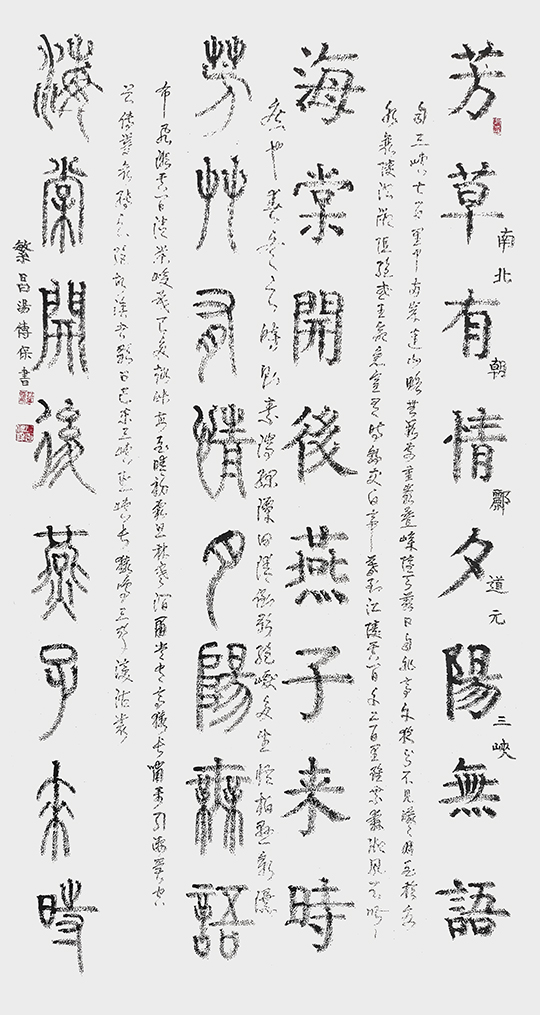 芳草有情夕陽無語
南北朝 酈道元 三峽
自三峽七百里中兩岸連山略無闕處重巖疊嶂隱天蔽日自非亭午夜分不見曦月至於夏
水襄陵沿泝阻絕或王命急宣有時朝發白帝暮到江陵其間千二百里雖乘奔御風不以
海棠開後燕子來時
疾也春冬之時則素湍綠潭回清倒影絕巘多生怪柏懸泉瀑
芳艸有情夕陽無語
布飛漱其間清榮峻茂良多趣味每至晴初霜旦林寒澗肅常有高猿長嘯屬引淒異空
谷傳響哀轉久絕故漁者歌曰巴東三峽巫峽長猿鳴三聲淚沾裳
海棠開後燕子來時
繁昌湯傳保書